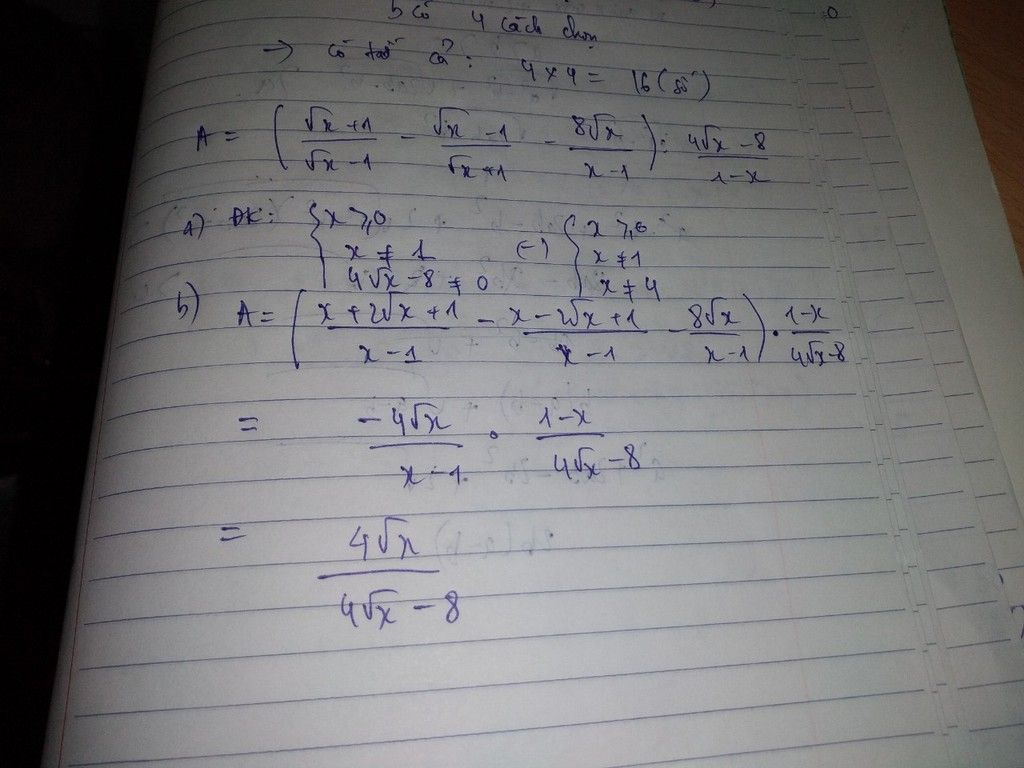 b có 4 cách chọn
→ có tất cả: 4 x 4 = 16 (số)
A = ( (√x + 1)/(√x - 1) - (√x - 1)/(√x + 1) - 8√x/(x - 1) ) : (4√x - 8)/(1 - x)
a) ĐK: { x ⩾ 0 { x ⩾ 0
x ≠ 1 (-) x ≠ 1
4√x - 8 ≠ 0 x ≠ 4
b) A = ( (x + 2√x + 1)/(x - 1) - (x - 2√x + 1)/(x - 1) - 8√x/(x - 1) ) . (1 - x)/(4√x - 8)
= (-4√x)/(x - 1) . (1 - x)/(4√x - 8)
= 4√x/(4√x - 8)